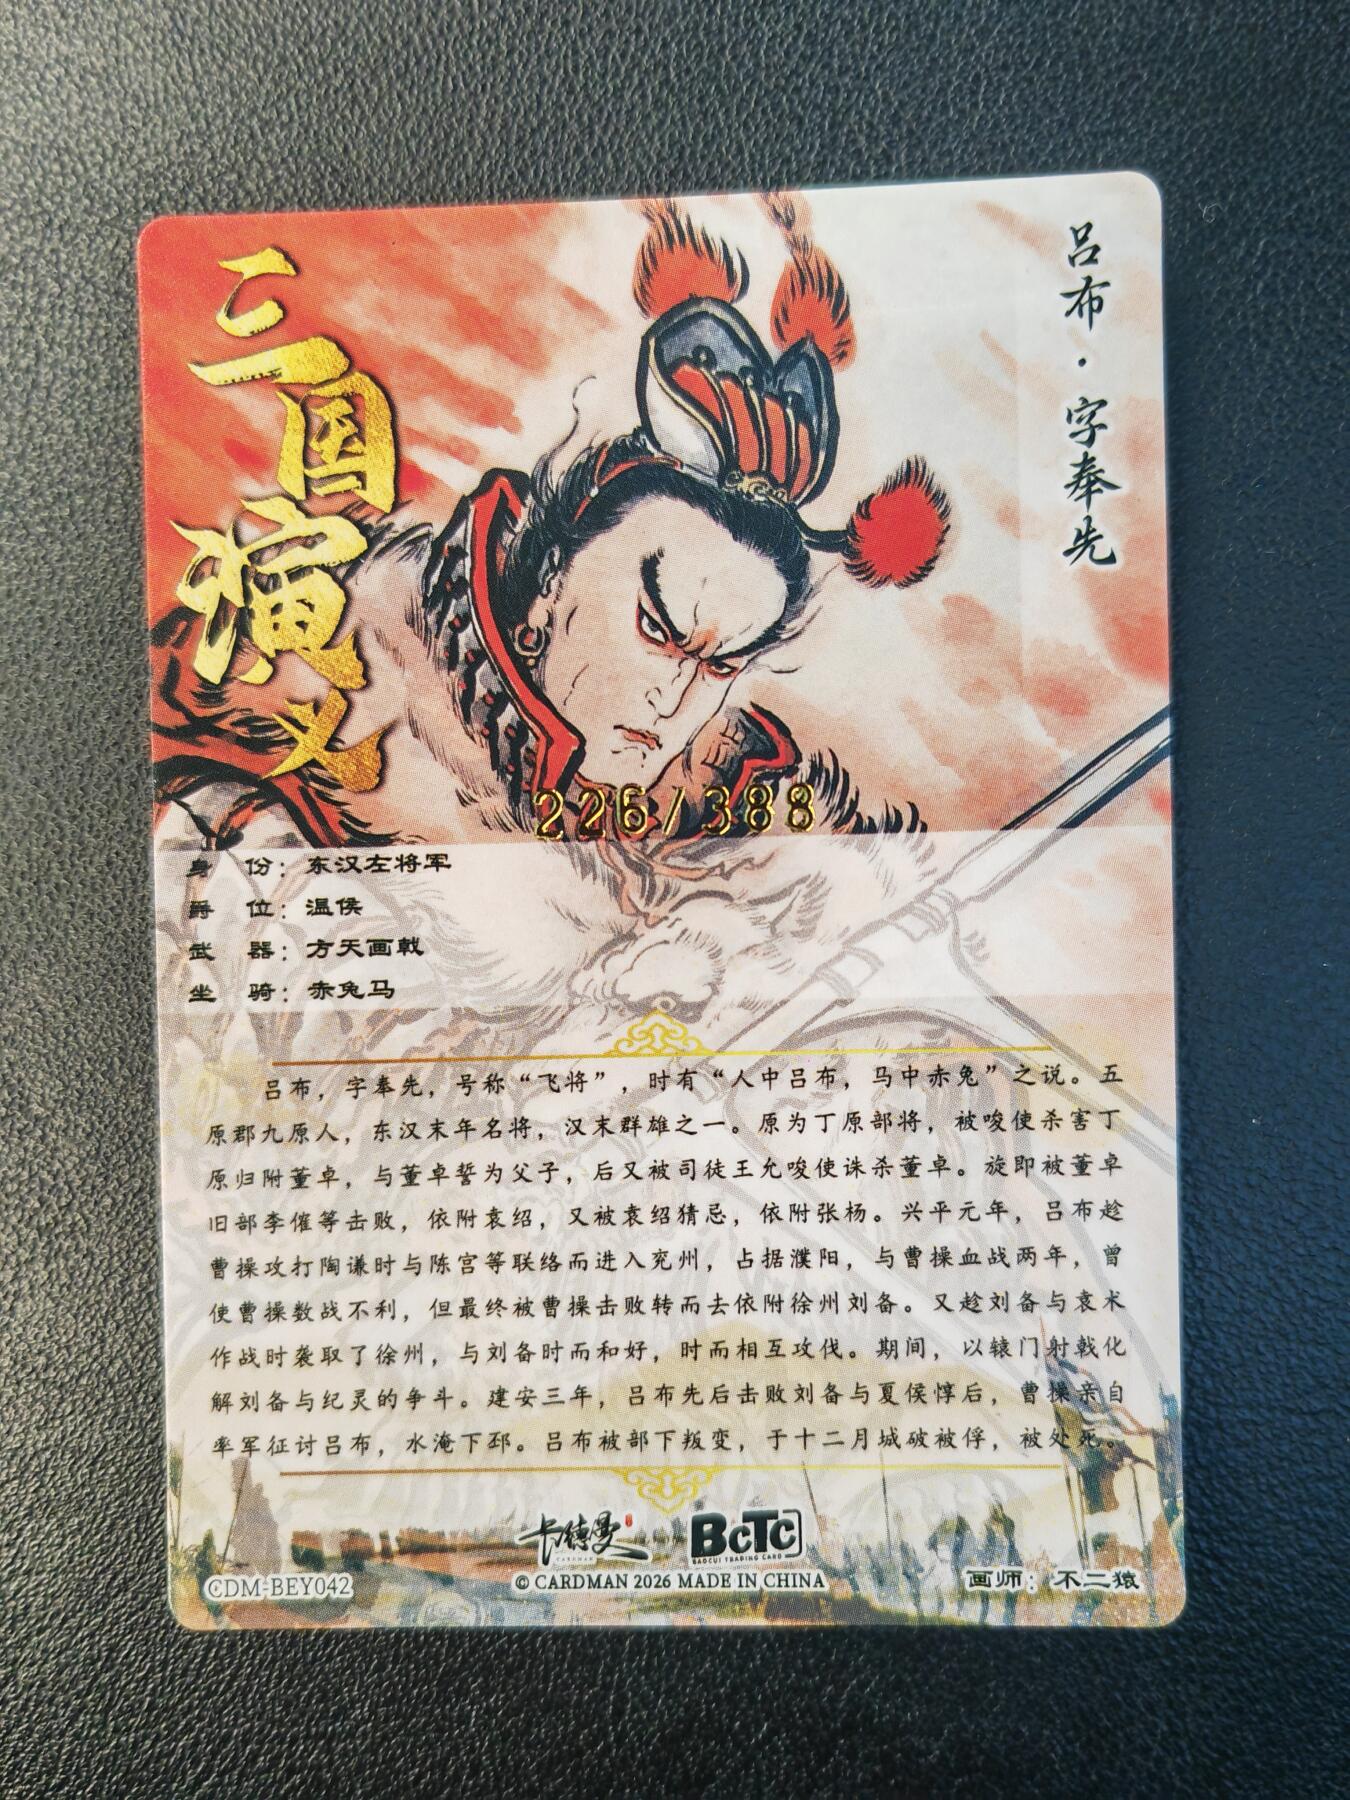 三国演义
吕布·字奉先
226/388
身 份：东汉左将军
爵 位：温侯
武 器：方天画戟
坐 骑：赤兔马
吕布，字奉先，号称“飞将”，时有“人中吕布，马中赤兔”之说。五
原郡九原人，东汉末年名将，汉末群雄之一。原为丁原部将，被唆使杀害丁
原归附董卓，与董卓誓为父子，后又被司徒王允唆使诛杀董卓。旋即被董卓
旧部李傕等击败，依附袁绍，又被袁绍猜忌，依附张杨。兴平元年，吕布趁
曹操攻打陶谦时与陈宫等联络而进入兖州，占据濮阳，与曹操血战两年，曾
使曹操数战不利，但最终被曹操击败转而去依附徐州刘备。又趁刘备与袁术
作战时袭取了徐州，与刘备时而和好，时而相互攻伐。期间，以辕门射戟化
解刘备与纪灵的争斗。建安三年，吕布先后击败刘备与夏侯惇后，曹操亲自
率军征讨吕布，水淹下邳。吕布被部下叛变，于十二月城破被俘，被处死。
卡德曼
CARDMAN
BCTC
BAOCUI TRADING CARD
CDM-BEY042
© CARDMAN 2026 MADE IN CHINA
画师：不二猿